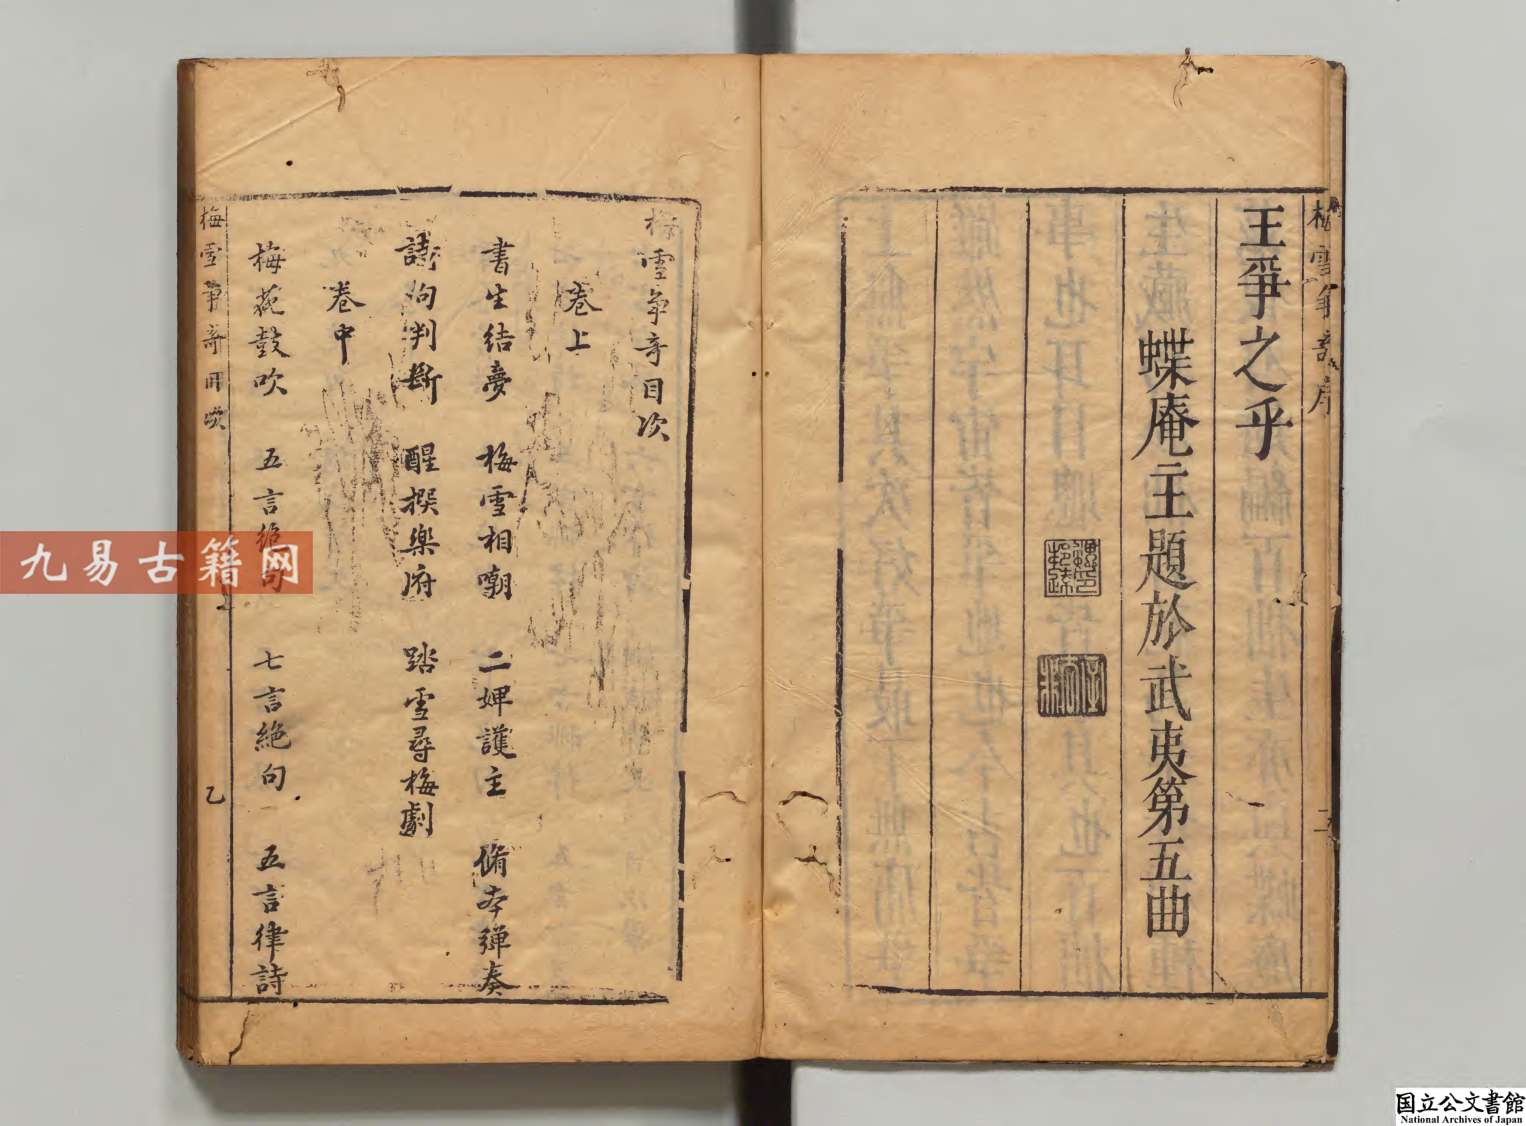 王爭之乎
蝶庵主題於武夷第五曲
梅雪爭奇序
梅雪爭奇目次
卷上
書生結夢 梅雪相嘲 二婢護主 脩本彈奏
詩詢判斷 醒撰樂府 踏雪尋梅劇
卷中
梅花鼓吹 五言絕句 七言絕句 五言律詩
梅雪爭奇目次 乙
九易古籍网
国立公文書館
National Archives of Japan